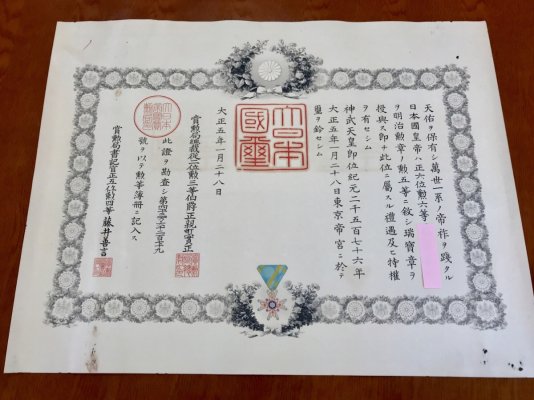 天佑ヲ保有シ萬世一系ノ帝祚ヲ踐タル
日本國皇帝ハ正六位勲六等
ヲ明治勲章ノ勲五等ニ敍シ瑞寶章ヲ
授與ス即チ此位ニ屬スル禮遇及ヒ特權
ヲ有セシム
神武天皇即位紀元二千五百七十六年
大正五年一月二十八日東京帝宮ニ於テ
璽ヲ鈐セシム
大日本國璽
大正五年一月二十八日
賞勲局總裁從二位勲三等伯爵正親町實正
此證ヲ勘査シ第四百二十二百七十九
號ヲ以テ勲等簿册ニ記入ス
賞勲局書記官正五位勲四等藤井善言